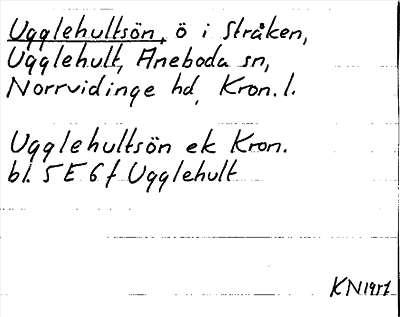 Ugglehultsön, ö i Stråken,
Ugglehult, Aneboda sn,
Norrvidinge hd, Kron. l.
Ugglehultsön ek Kron.
bl. 5 E 6 f Ugglehult
KN 1957